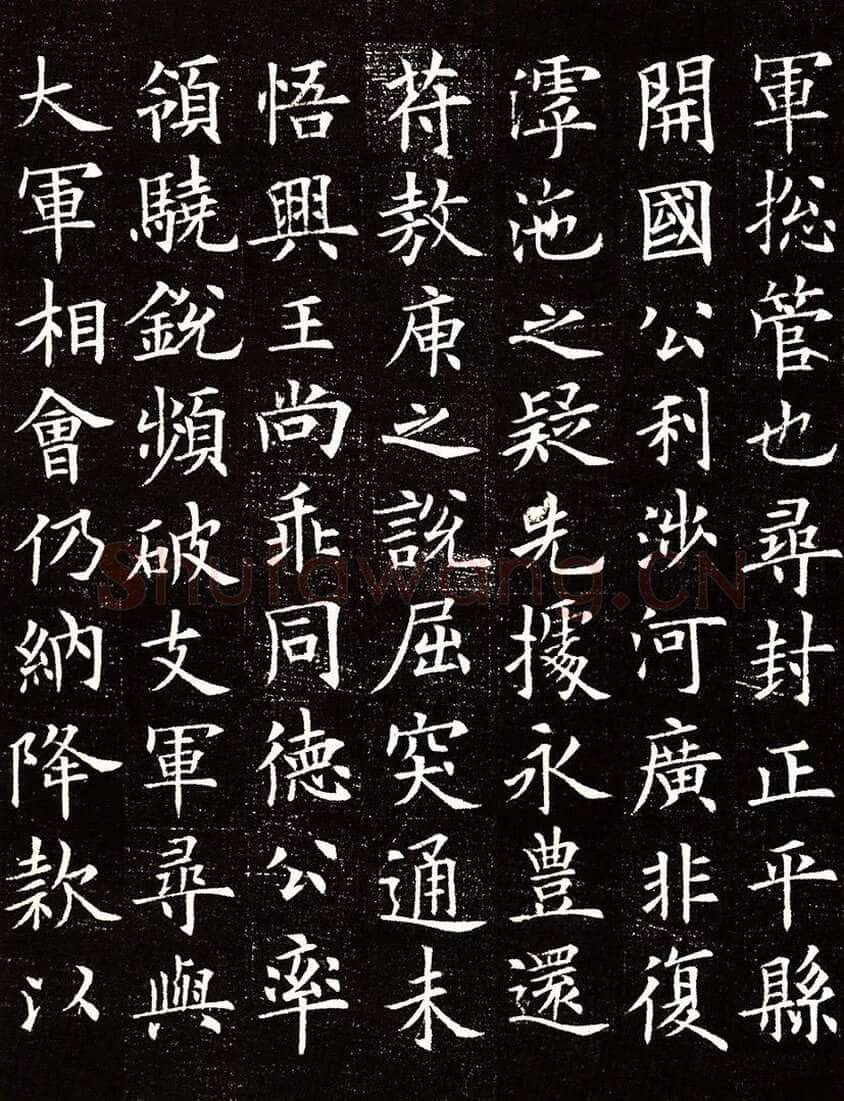 軍揔管也尋封正平縣
開國公利涉河廣非復
滹沲之疑先據永豊還
苻敖庾之説屈突通未
悟興王尚乖同德公率
領驍鋭頻破支軍尋與
大軍相會仍納降款以
Shufawang.CN